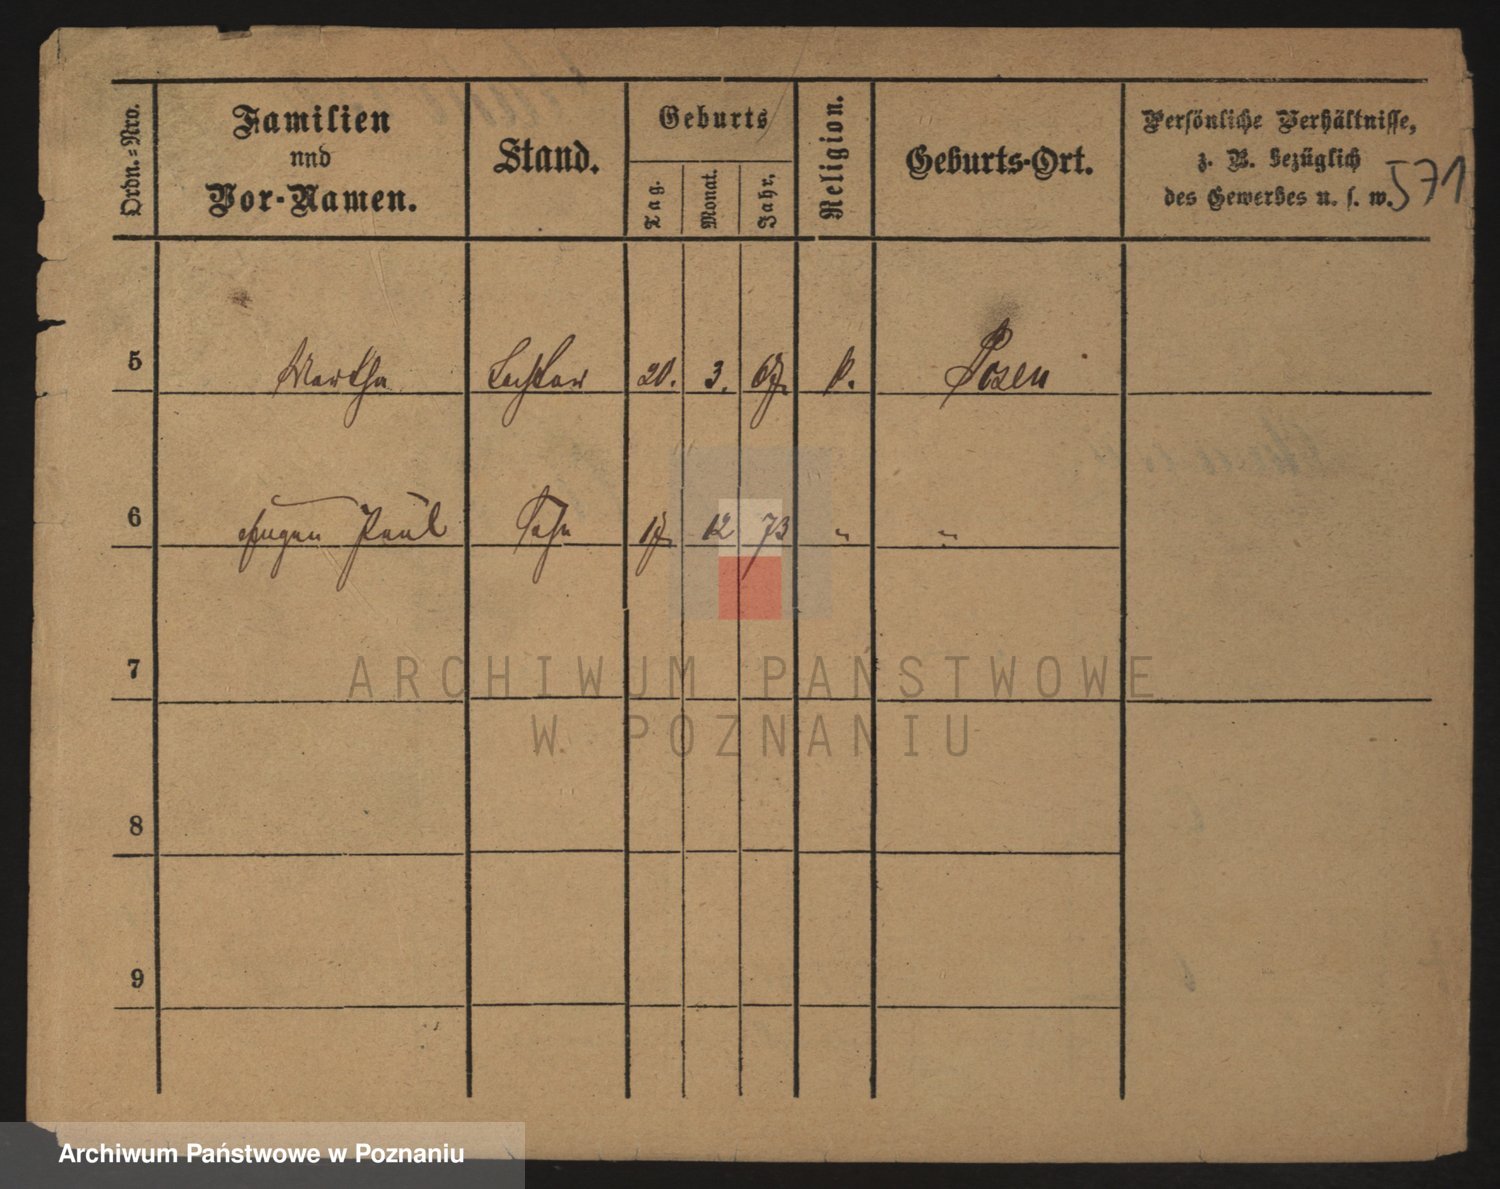 Ordn.=Nro.
Familien
und
Vor-Namen.
Stand.
Geburts
Tag.
Monat.
Jahr.
Religion.
Geburts-Ort.
Persönliche Verhältnisse,
z. B. bezüglich
des Gewerbes u. s. w.
571
5 Martha Tochter 20. 3. 67. Posen
6 Eugen Paul Sohn 17. 12 73 " "
7
8
9
ARCHIWUM PAŃSTWOWE
W POZNANIU
Archiwum Państwowe w Poznaniu